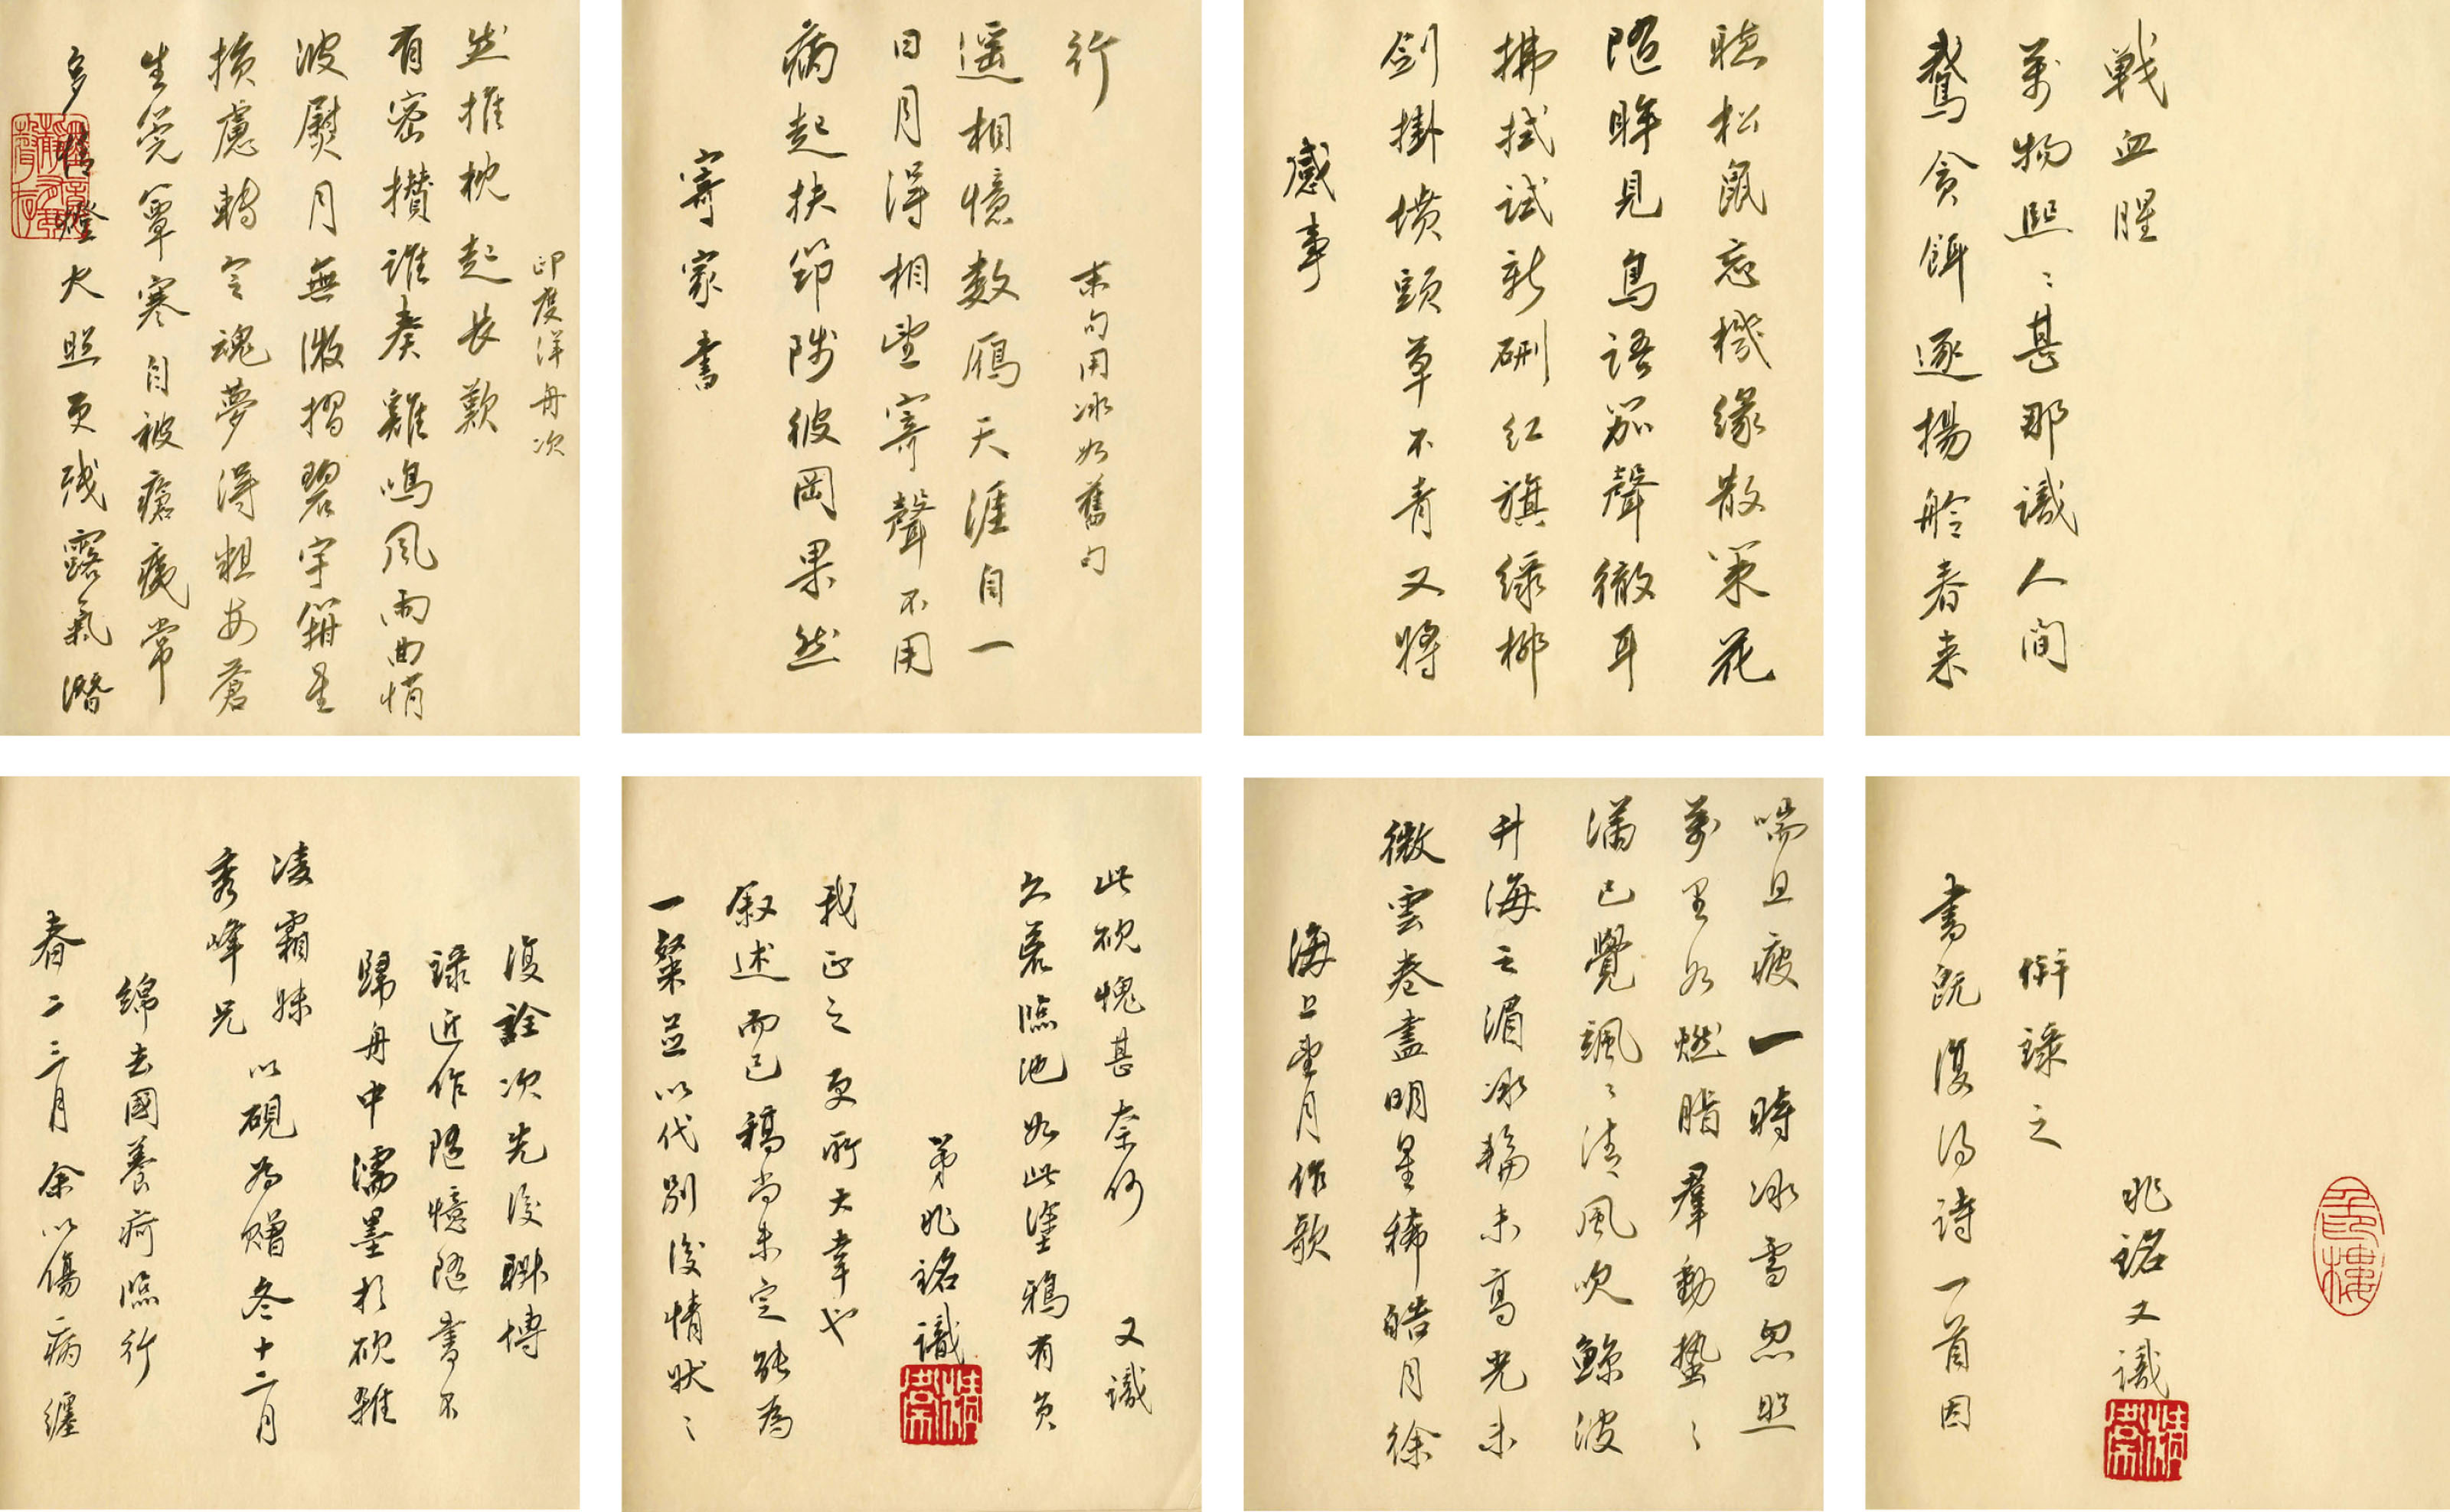 多情燈火照更殘露氣潛
生筦簟寒自被瘡痍常
損慮轉言魂夢得粗安蒼
波熨月無微摺碧宇籠星
有密攢誰奏雞鳴風雨曲悄
然推枕起長歎
印度洋舟次
寄家書
病起扶筇陟彼岡果然
日月得相望寄聲不用
遙相憶數雁天涯自一
行 末句用冰如舊句
感事
劍掛墳頭草不青又將
拂拭試新硎紅旗綠柳
隨眸見鳥語笳聲徹耳
聽松鼠忘機緣散策花
鵞貪餌逐揚舲春來
萬物熙〻甚那識人間
戰血腥
春二三月余以傷病纏
綿去國養疴臨行
秀峰兄
凌霜妹 以硯為贈冬十二月
歸舟中濡墨於硯雜
錄近作隨憶隨書不
復詮次先後聊博
一粲並以代別後情狀〻
叙述而已稿尚未定能為
我正之更所大幸也
弟兆銘識
久荒臨池如此塗鴉有負
此硯愧甚奈何 又識
海上望月作歌
微雲卷盡明星稀皓月徐
升海之湄冰輪未高光未
滿已覺颯〻清風吹鯨波
萬里如燃脂羣動蟄〻
喘且疲一時冰雪忽照
書既復得詩一首因
併錄之
兆銘又識